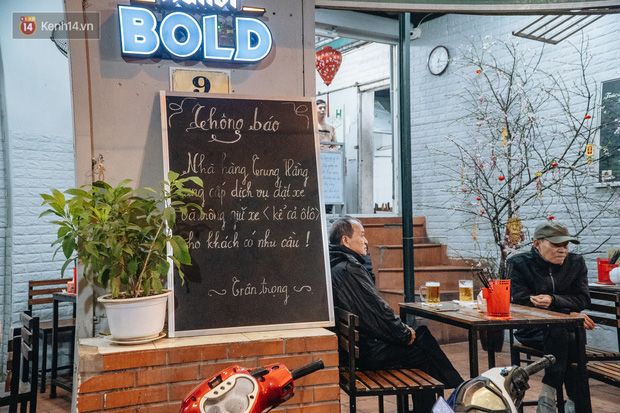 14 Kenh14.vn
BOLD
9
Thông báo
Nhà hàng Trung Hằng
cung cấp dịch vụ đặt xe
và trông giữ xe < kể cả ôtô >
cho khách có nhu cầu !
~ Trân trọng ~